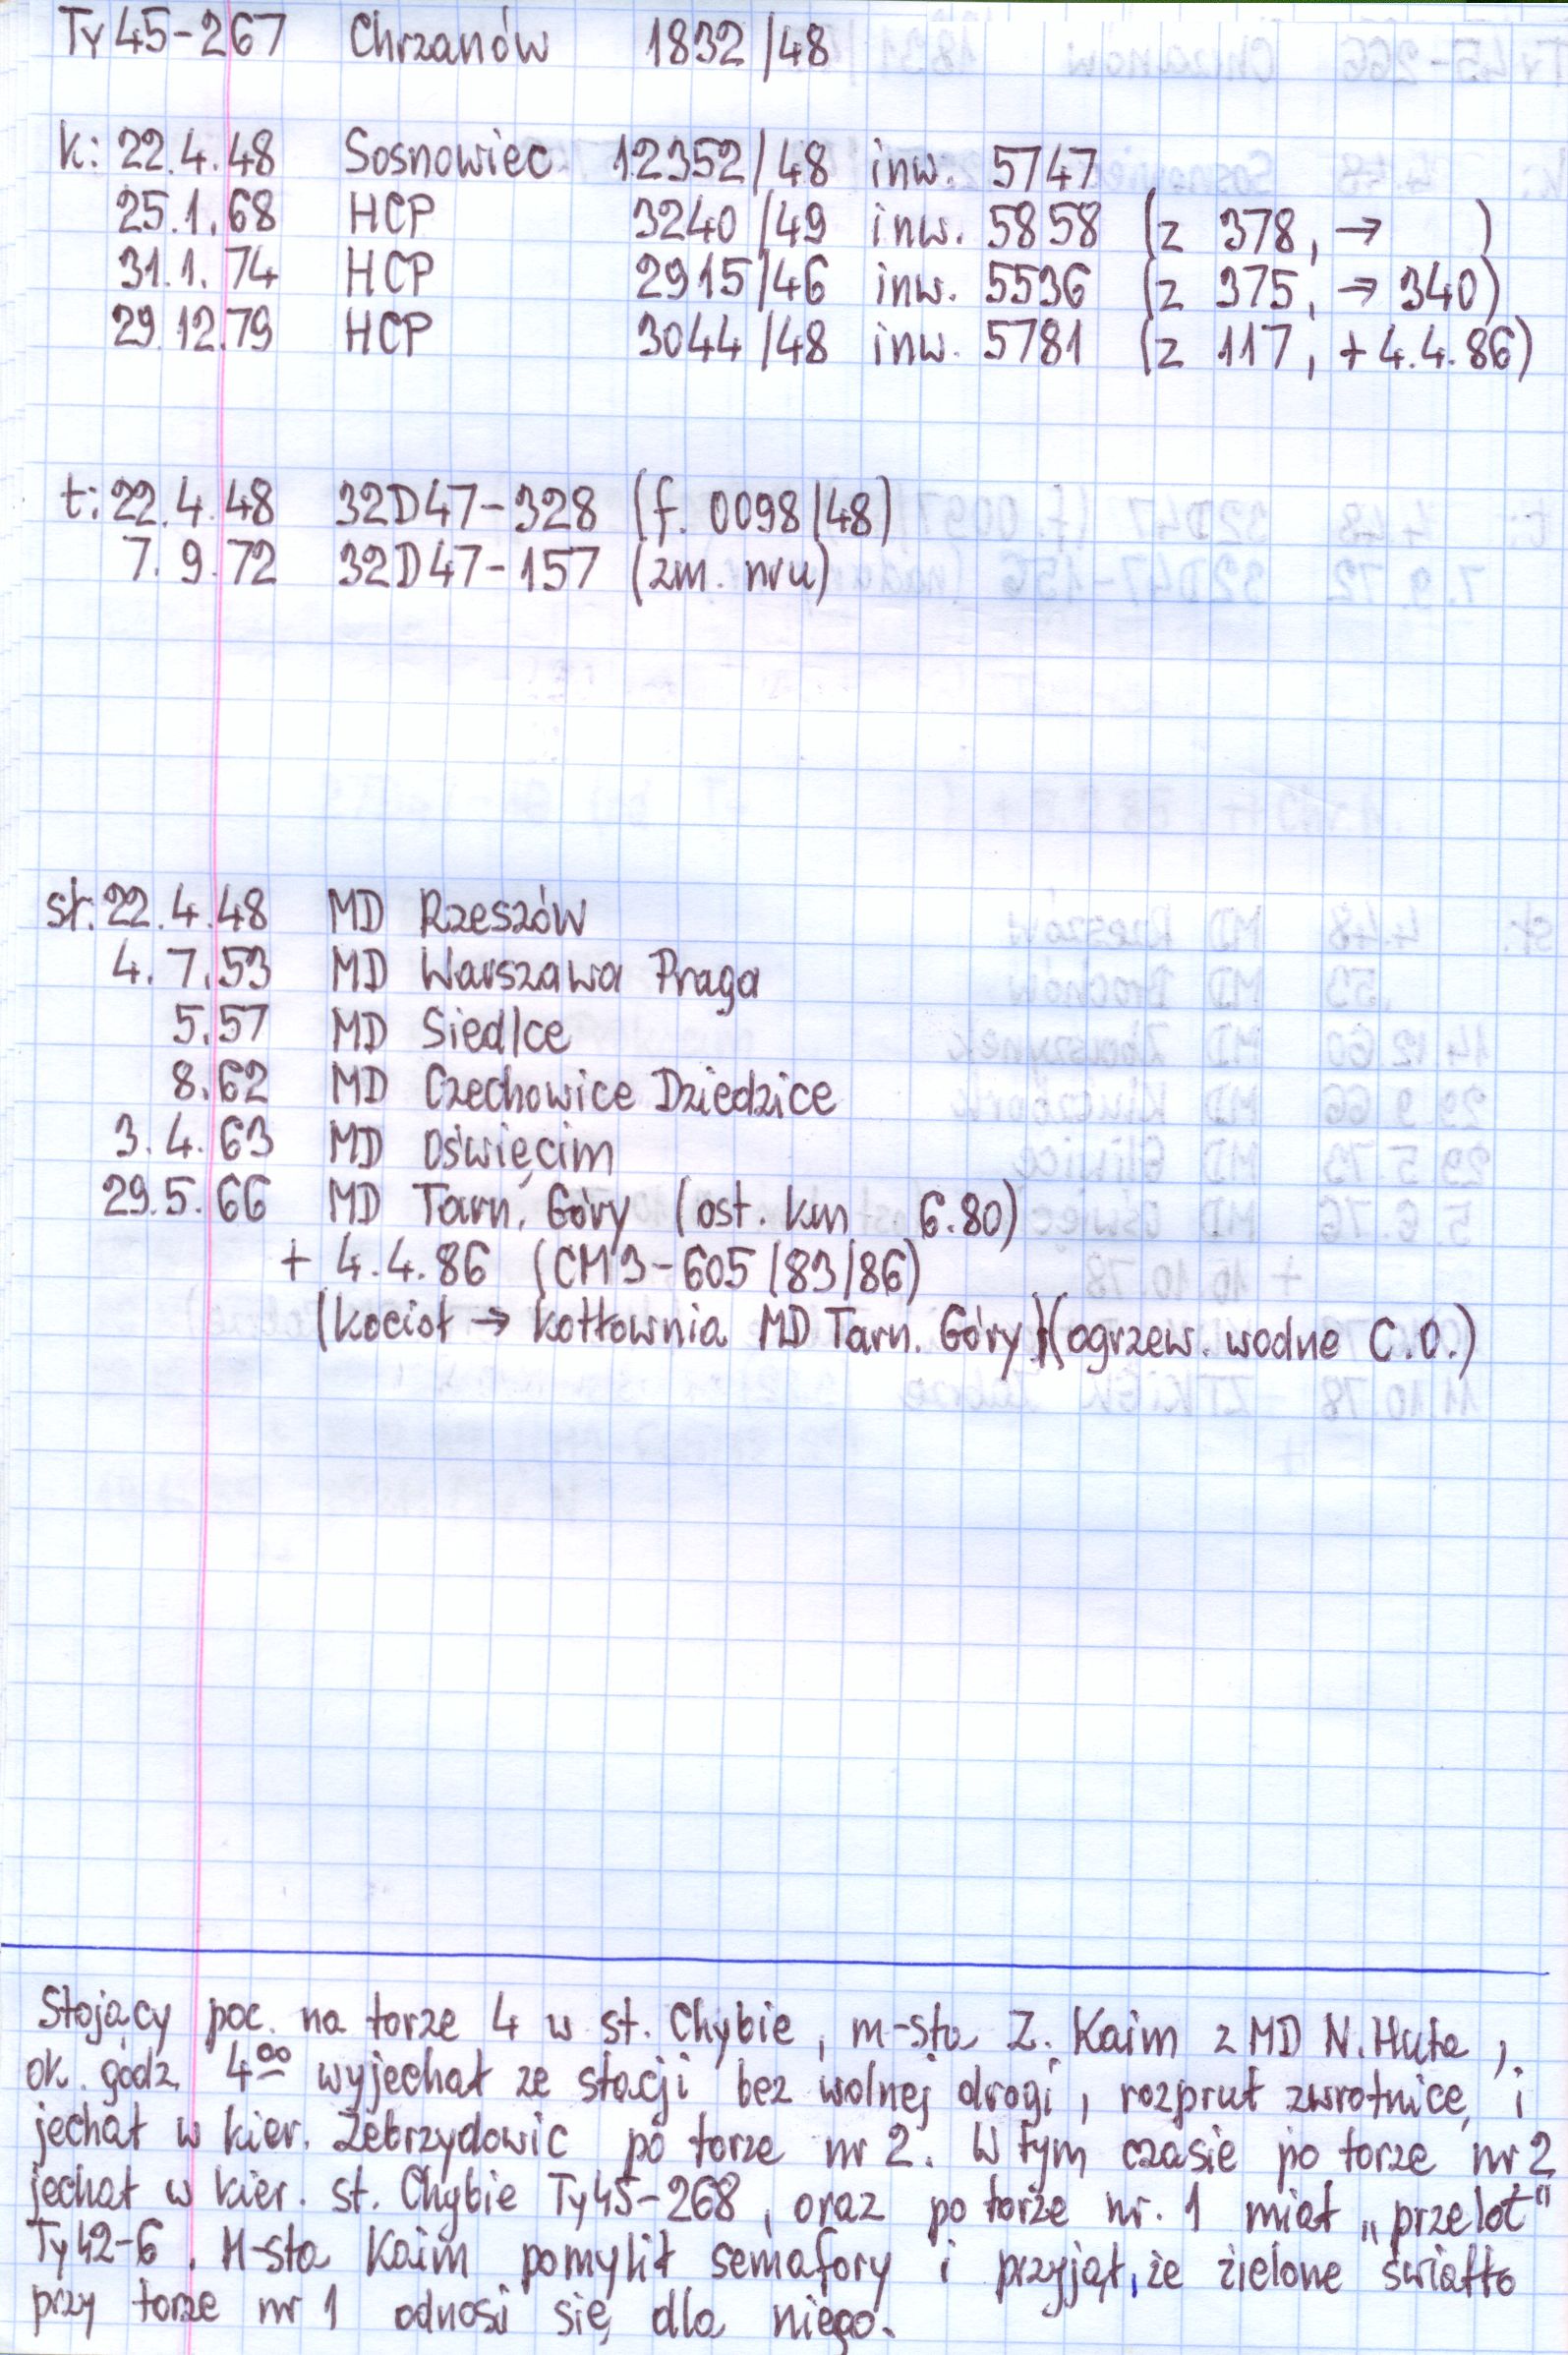 Ty45-267 Chrzanów 1832/48
k: 22.4.48 Sosnowiec 12352/48 inw. 5747
25.1.68 HCP 3240/49 inw. 5858 (z 378, → )
31.1.74 HCP 2915/46 inw. 5536 (z 375, → 340)
29.12.79 HCP 3044/48 inw. 5781 (z 117, + 4.4.86)
t: 22.4.48 32D47-328 (f. 0098/48)
7.9.72 32D47-157 (zm. nru)
st: 22.4.48 MD Rzeszów
4.7.53 MD Warszawa Praga
5.57 MD Siedlce
8.62 MD Czechowice Dziedzice
3.4.63 MD Oświęcim
29.5.66 MD Tarn. Góry (ost. km 6.80)
+ 4.4.86 (CM3-605/83/86)
(kocioł → kotłownia MD Tarn. Góry)(ogrzew. wodne C.O.)
Stojący poc. na torze 4 w st. Chybie, m-sta Z. Kaim z MD N.Huta,
ok. godz. 4⁰⁰ wyjechał ze stacji bez wolnej drogi, rozpruł zwrotnicę i
jechał w kier. Zebrzydowic po torze nr 2. W tym czasie po torze nr 2
jechał w kier. st. Chybie Ty45-268, oraz po torze nr. 1 miał „przelot"
Ty42-6. M-sta Kaim pomylił semafory i przyjął, że zielone światło
przy torze nr 1 odnosi się dla niego.